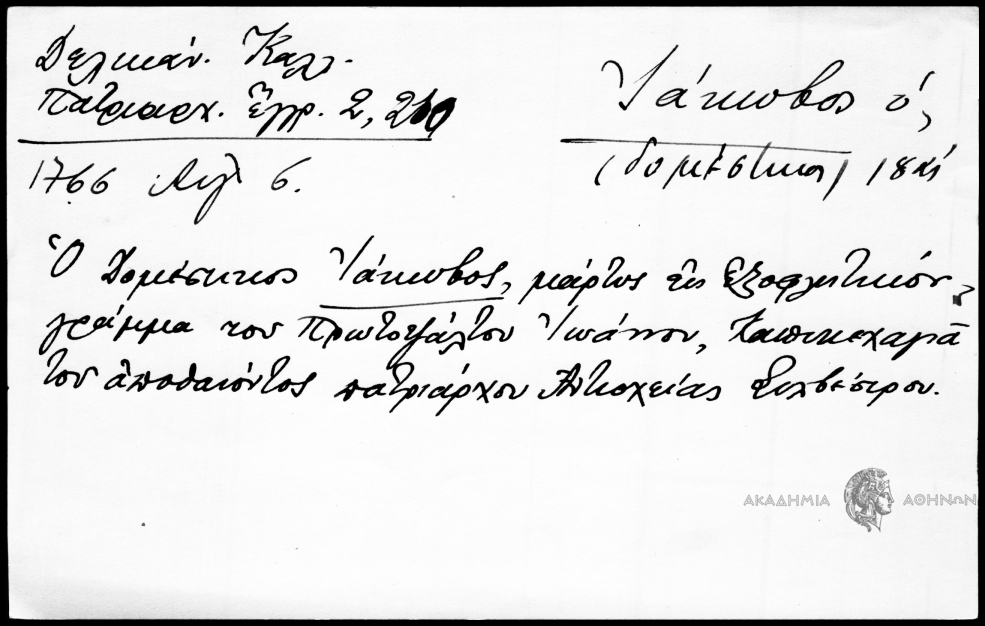 Δελικάν. Καλλ.
Πατριαρχ. Ἔγγρ. 2, 210
Ἰάκωβος ὁ,
1766 Αυγ 6.
(δομέστικος) 18ος
Ὁ Δομέστικος Ἰάκωβος, μάρτυς εἰς ἐξοφλητικόν
γράμμα του Πρωτοψάλτου Ἰωάννου, Καπικεχαγιᾶ
του ἀποθανόντος πατριάρχου Ἀντιοχείας Συλβέστρου.
ΑΚΑΔΗΜΙΑ ΑΘΗΝΩΝ